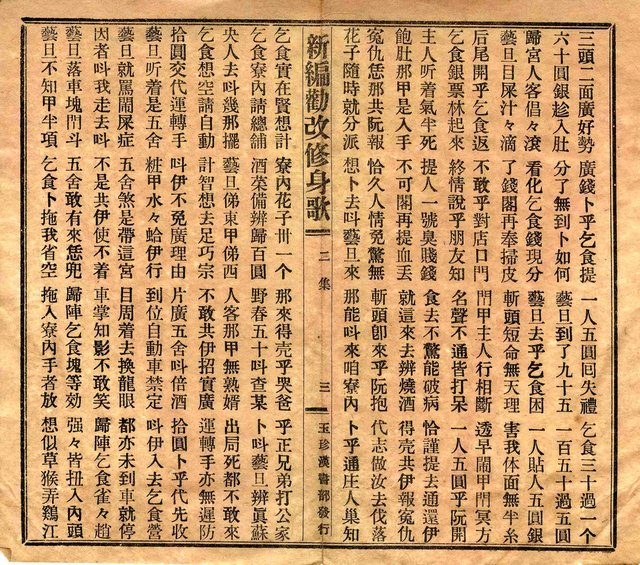 三頭二面廣好勢 廣錢卜乎乞食提 一人五圓囘失禮 乞食三十過一个
六十圓銀趁入肚 分了無到卜如何 藝旦到了九十五 一百五十過五圓
歸宮人客倡々滾 看化乞食錢現分 藝旦去乎乞食困 一人貼人五圓銀
藝旦目屎汁々滴 了錢閣再奉掃皮 斬頭短命無天理 害我体面無半糸
后尾開乎乞食返 不敢乎對店口門 門甲主人行相斷 透早鬧甲門冥方
乞食銀票林起來 終情說乎朋友知 名聲不通皆打呆 一人五圓乎阮開
主人听着氣半死 提人一號臭賤錢 食去不驚能破病 恰謹提去通還伊
飽肚那甲是人手 不可閣再提血丟 就這來去辨燒酒 得売共伊報寃仇
寃仇恁那共阮報 恰久人情免驚無 斬頭卽來乎阮抱 代志做汝去伐落
花子隨時就分派 想卜去呌藝旦來 那能呌來咱寮內 卜乎通庄人巢知
新編勸改修身歌 三集 三 玉珍漢書部發行
乞食實在賢想計 寮內花子卅一个 那來得売乎哭爸 乎正兄弟打公家
乞食寮內請總舖 酒菜備辨歸百圓 野春五十呌查某 卜呌藝旦辨眞蘇
央人去呌幾那擺 藝旦俤東甲俤西 人客那甲無熟婿 出局死都不敢來
乞食想空請自動 計智想去足巧宗 不敢共伊招實廣 運轉手亦無遲防
拾圓交代運轉手 呌伊不免廣理由 片廣五舍呌倍酒 拾圓卜乎代先收
藝旦听着是五舍 粧甲水々蛤伊行 到位自動車禁定 呌伊入去乞食營
藝旦就罵鬧屎症 五舍煞是帶這宮 目周着去換龍眼 都亦未到車就停
因者呌我走去呌 不是共伊使不着 車掌知影不敢笑 歸陣乞食雀々趙
藝旦落車塊鬥斗 五舍敢有來恁兜 歸陣乞食塊等効 强々皆扭入內頭
藝旦不知甲半項 乞食卜拖我省空 拖入寮內手者放 想似草猴弄鷄江